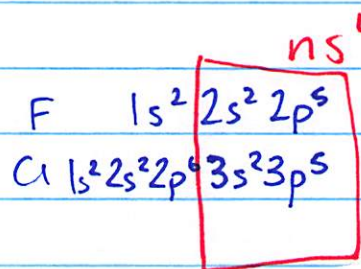 ns
F 1s² 2s² 2p⁵
Cl 1s² 2s² 2p⁶ 3s² 3p⁵